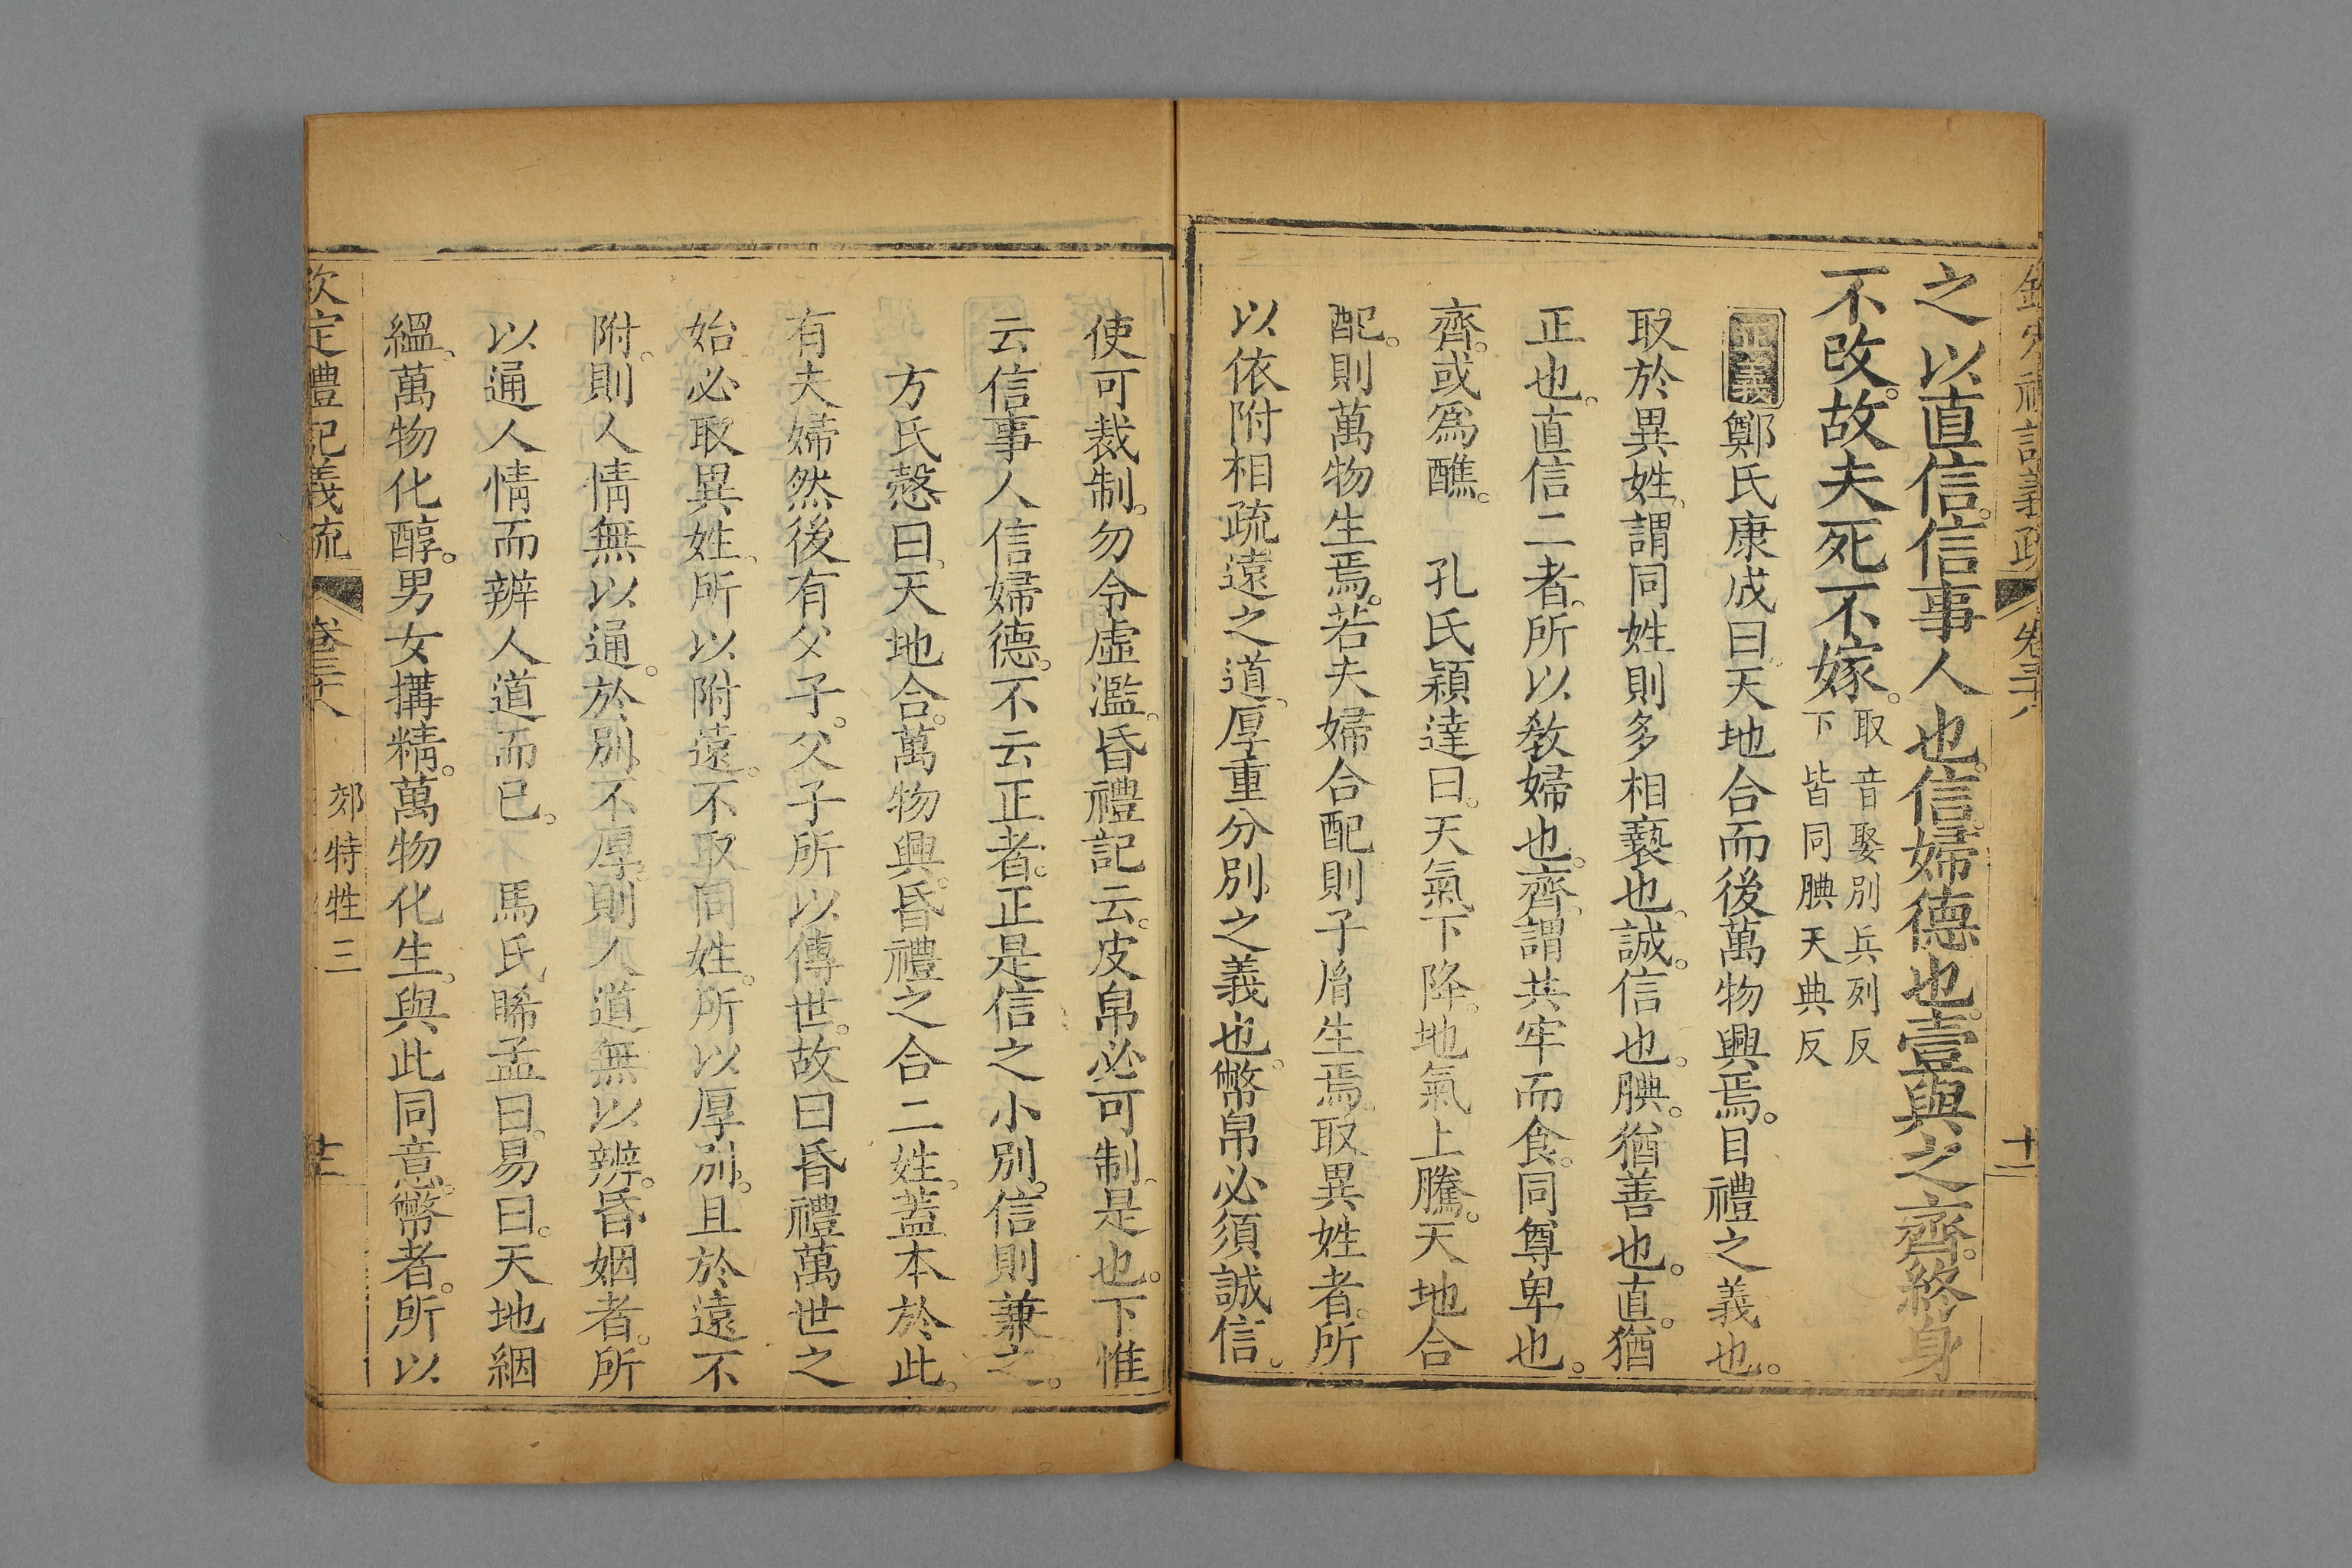 之以直信。信事人也。信婦德也。壹與之齊。終身
不改。故夫死不嫁。取音娶別兵列反
下皆同腆天典反
正義鄭氏康成曰。天地合而後萬物興焉。目禮之義也。
取於異姓。謂同姓則多相褻也。誠。信也。腆。猶善也。直。猶
正也。直信二者。所以敎婦也。齊。謂共牢而食。同尊卑也。
齊。或爲醮。 孔氏穎達曰。天氣下降。地氣上騰。天地合
配。則萬物生焉。若夫婦合配則子胤生焉。取異姓者。所
以依附相疏遠之道。厚重分別之義也。幣帛必須誠信。
使可裁制。勿令虛濫。昏禮記云。皮帛必可制。是也。下惟
云信事人信婦德。不云正者。正是信之小別。信則兼之。
方氏慤曰。天地合。萬物興。昏禮之合二姓。蓋本於此。
有夫婦然後有父子。父子所以傳世。故曰昏禮萬世之
始必取異姓。所以附遠。不取同姓。所以厚別。且於遠不
附。則人情無以通。於別不厚。則人道無以辨。昏姻者。所
以通人情而辨人道而已。 馬氏睎孟曰。易曰。天地絪
縕。萬物化醇。男女搆精。萬物化生。與此同意。幣者。所以
欽定禮記義疏 卷三十八 郊特牲三 十二